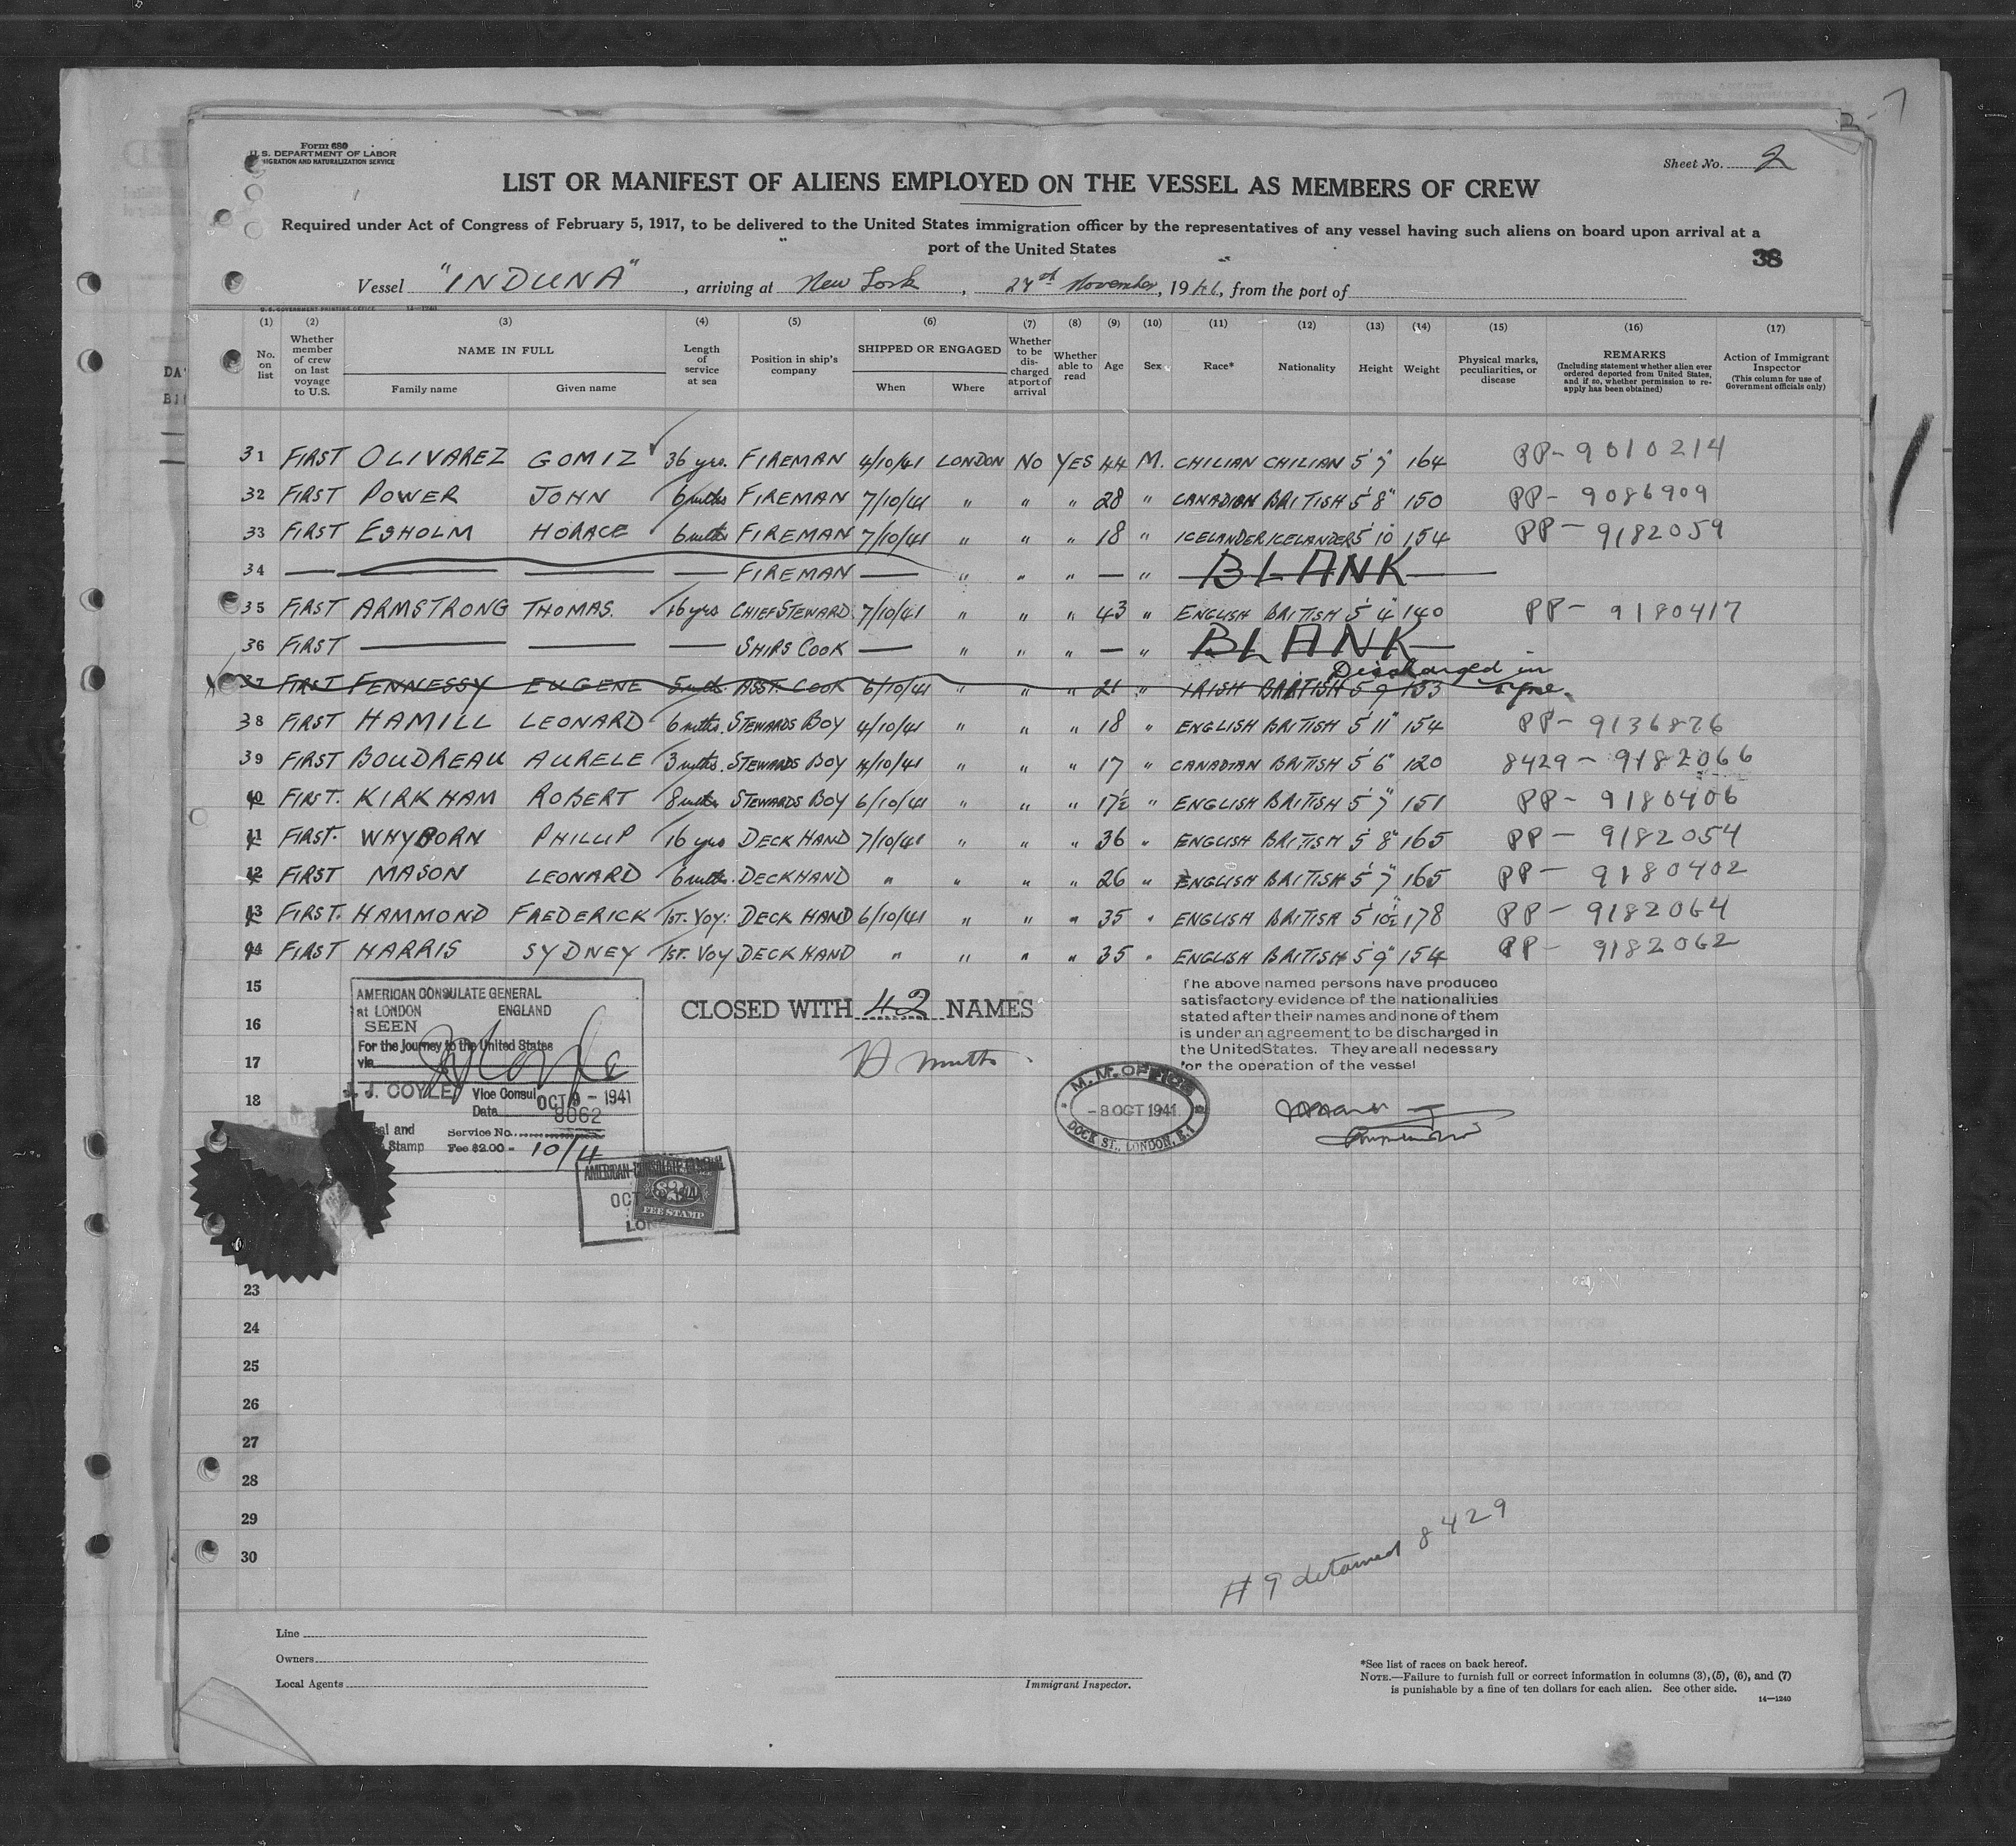 Form 680
U. S. DEPARTMENT OF LABOR
IMMIGRATION AND NATURALIZATION SERVICE
Sheet No. 2
LIST OR MANIFEST OF ALIENS EMPLOYED ON THE VESSEL AS MEMBERS OF CREW
Required under Act of Congress of February 5, 1917, to be delivered to the United States immigration officer by the representatives of any vessel having such aliens on board upon arrival at a
port of the United States
38
Vessel "INDUNA", arriving at New York, 27th November, 1941, from the port of
U. S. GOVERNMENT PRINTING OFFICE 14—1240
(1) (2) (3) (4) (5) (6) (7) (8) (9) (10) (11) (12) (13) (14) (15) (16) (17)
No. on list
Whether member of crew on last voyage to U.S.
NAME IN FULL
Family name Given name
Length of service at sea
Position in ship's company
SHIPPED OR ENGAGED
When Where
Whether to be discharged at port of arrival
Whether able to read
Age
Sex
Race*
Nationality
Height
Weight
Physical marks, peculiarities, or disease
REMARKS
(Including statement whether alien ever ordered deported from United States, and if so, whether permission to reapply has been obtained)
Action of Immigrant Inspector
(This column for use of Government officials only)
31 FIRST OLIVAREZ GOMIZ 36 yrs. FIREMAN 4/10/41 LONDON NO YES 44 M. CHILIAN CHILIAN 5'7" 164 PP- 9010214
32 FIRST POWER JOHN 6 mths FIREMAN 7/10/41 " " " 28 " CANADIAN BRITISH 5'8" 150 PP- 9086909
33 FIRST ESHOLM HORACE 6 mths FIREMAN 7/10/41 " " " 18 " ICELANDER ICELANDER 5'10 154 PP- 9182059
34 — — — — FIREMAN — " " " — " BLANK
35 FIRST ARMSTRONG THOMAS. 16 yrs CHIEF STEWARD. 7/10/41 " " " 43 " ENGLISH BRITISH 5'4" 140 PP- 9180417
36 FIRST — — — SHIPS COOK — " " " — " BLANK
Discharged in
37 FIRST FENNESSY EUGENE 5 mths. ASST. COOK 6/10/41 " " " 21 " IRISH BRITISH 5'9 153 Tyne.
38 FIRST HAMILL LEONARD 6 mths. STEWARDS BOY 4/10/41 " " " 18 " ENGLISH BRITISH 5'11" 154 PP- 9136876
39 FIRST BOUDREAU AURELE 3 mths. STEWARDS BOY 4/10/41 " " " 17 " CANADIAN BRITISH 5'6" 120 8429 - 9182066
40 FIRST. KIRKHAM ROBERT 8 mths STEWARDS BOY 6/10/41 " " " 17½ " ENGLISH BRITISH 5'7" 151 PP- 9180406
41 FIRST. WHYBORN PHILLIP 16 yrs DECK HAND 7/10/41 " " " 36 " ENGLISH BRITISH 5'8" 165 PP- 9182054
42 FIRST MASON LEONARD 6 mths. DECKHAND " " " " 26 " ENGLISH BRITISH 5'7" 165 PP- 9180402
43 FIRST. HAMMOND FREDERICK 1ST. VOY: DECK HAND 6/10/41 " " " 35 " ENGLISH BRITISH 5'10½" 178 PP- 9182064
44 FIRST HARRIS SYDNEY 1ST. VOY DECK HAND " " " " 35 " ENGLISH BRITISH 5'9" 154 PP- 9182062
15
16
17
18
23
24
25
26
27
28
29
30
AMERICAN CONSULATE GENERAL
at LONDON ENGLAND
SEEN
For the journey to the United States
via
J. J. COYLE Vice Consul
Date OCT 9 - 1941
8062
Service No.
Stamp Fee $2.00 = 10/4
AMERICAN CONSULATE GENERAL
OCT
FEE STAMP
CLOSED WITH 42 NAMES
M. M. OFFICE
-8 OCT 1941
DOCK ST., LONDON, E.1
The above named persons have produced
satisfactory evidence of the nationalities
stated after their names and none of them
is under an agreement to be discharged in
the United States. They are all necessary
for the operation of the vessel
# 9 detained 8429
Line
Owners
Local Agents
Immigrant Inspector.
*See list of races on back hereof.
NOTE.—Failure to furnish full or correct information in columns (3), (5), (6), and (7)
is punishable by a fine of ten dollars for each alien. See other side.
14—1240